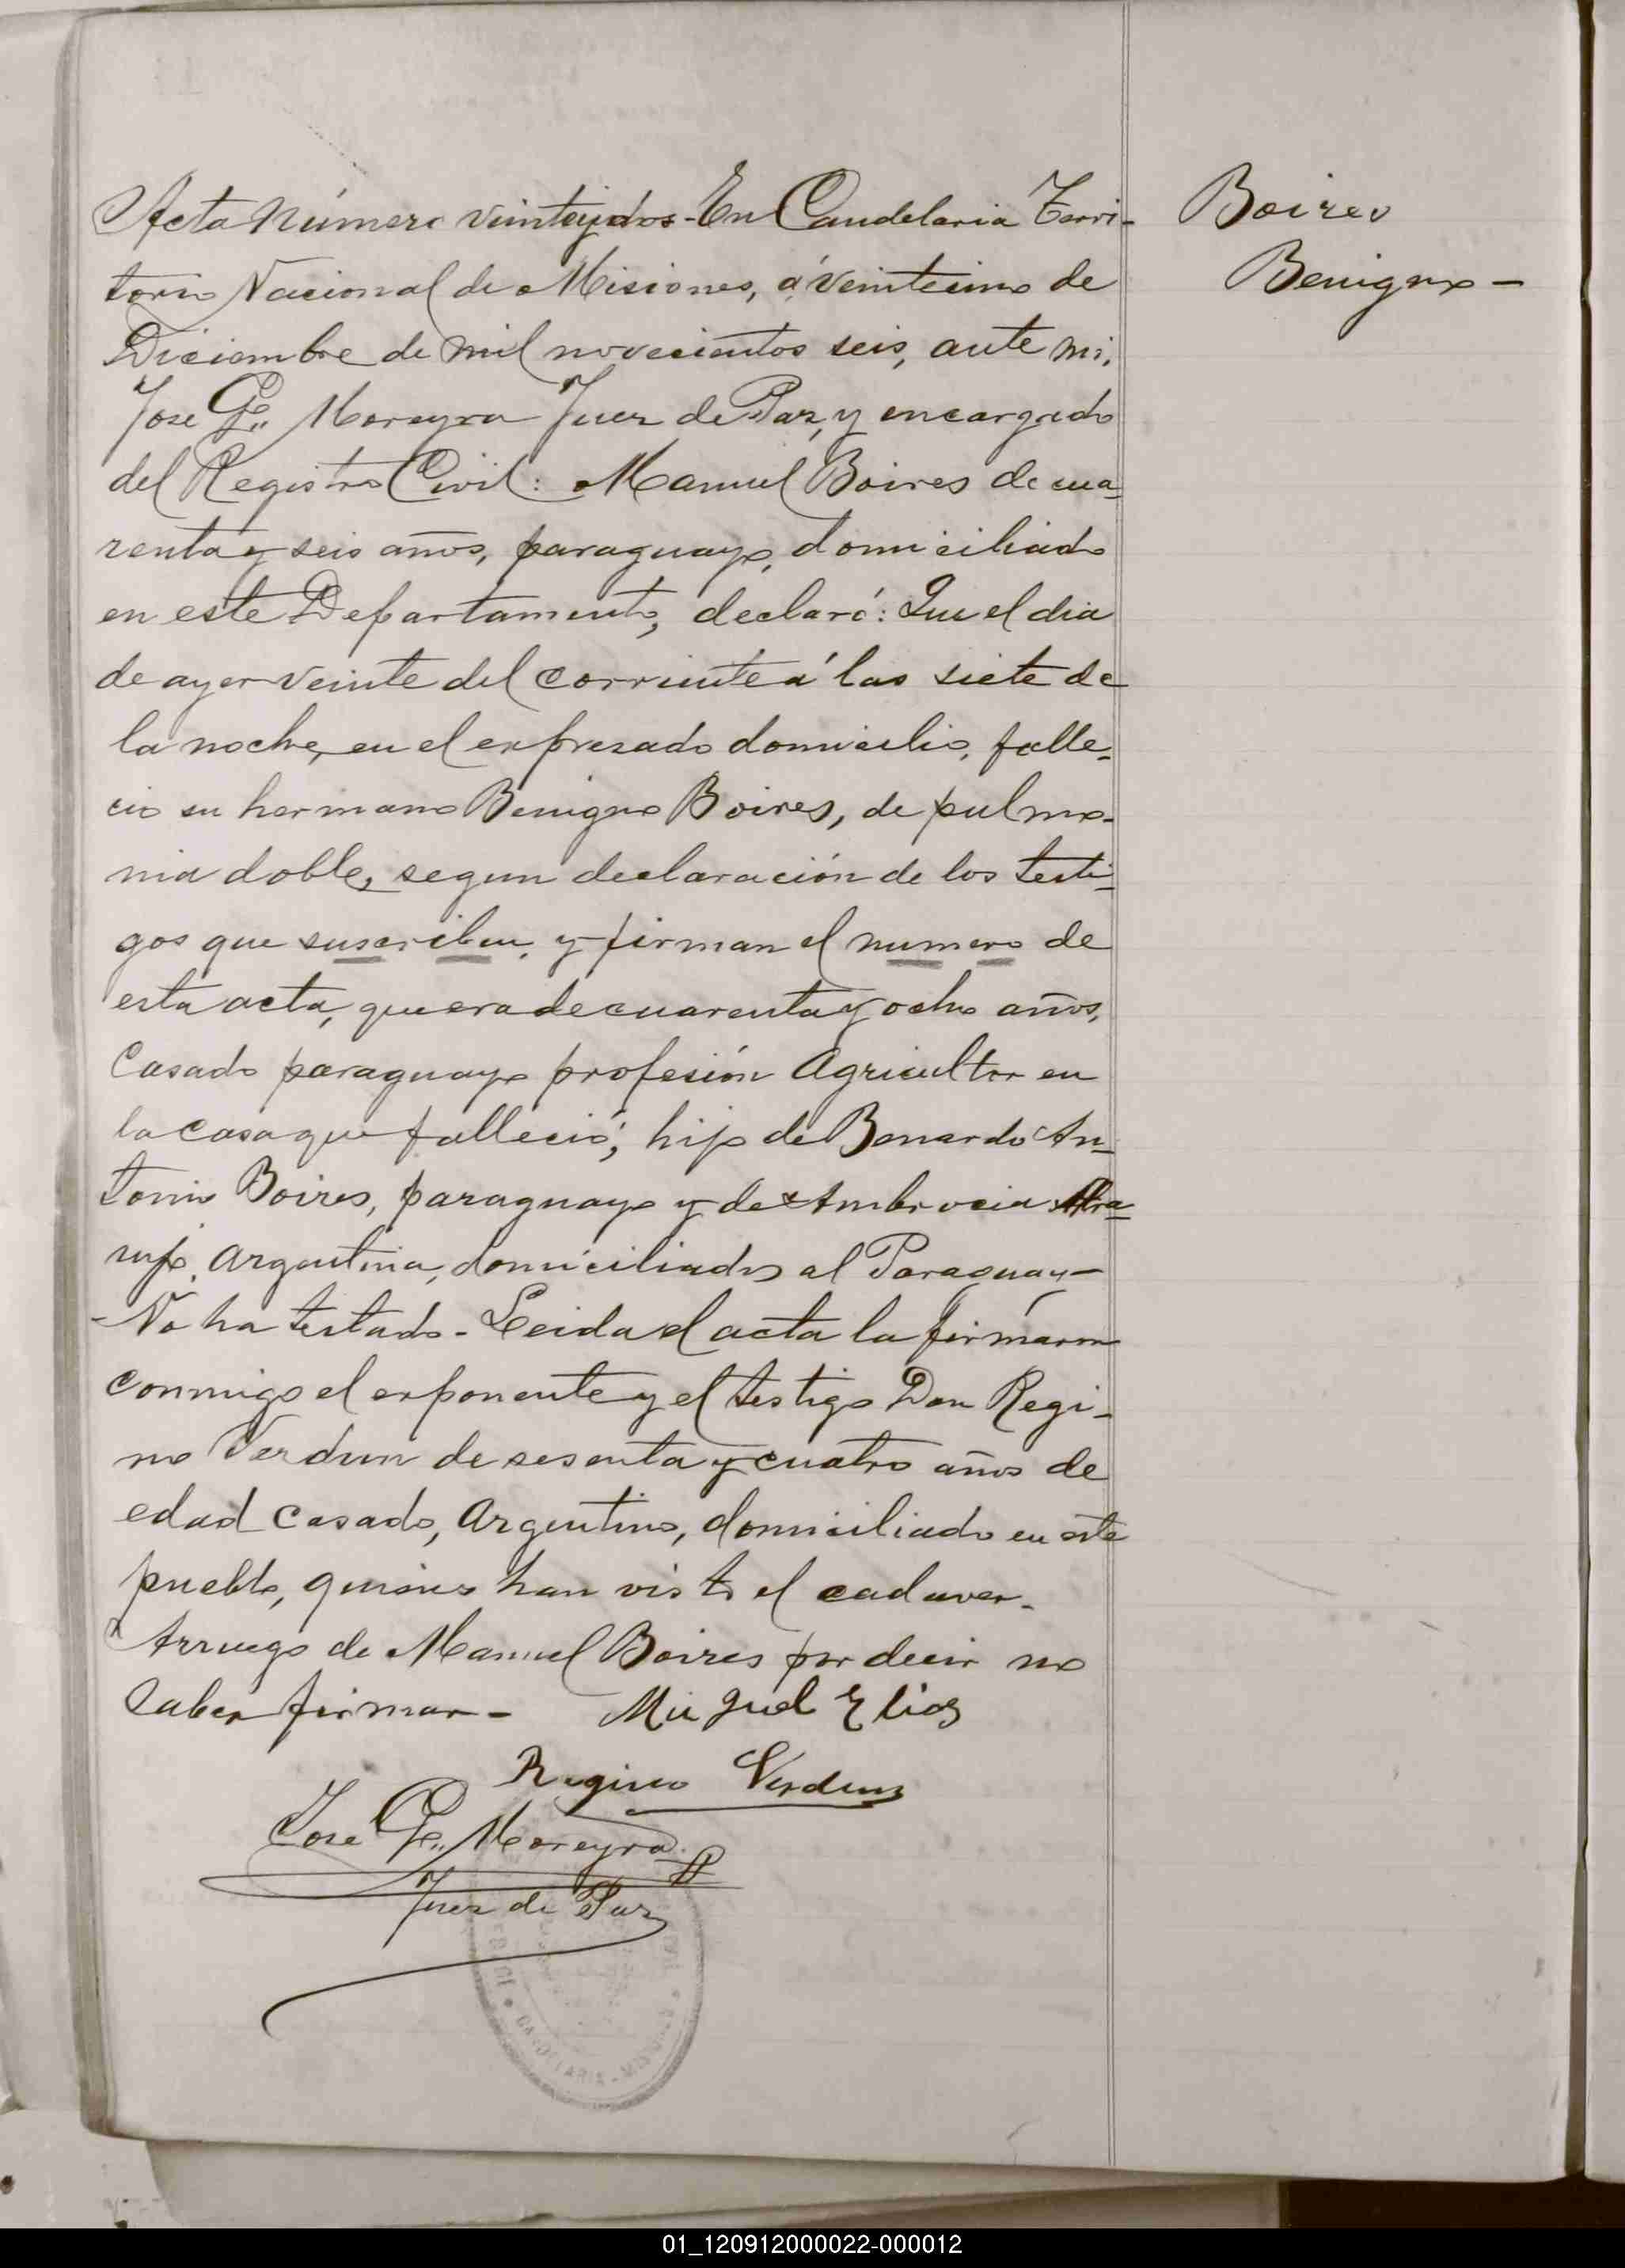 Acta Número veinteydos - En Candelaria Terri-
torio Nacional de Misiones, á veinteiuno de
Diciembre de mil novecientos seis, ante mi,
Jose G. Moreyra Juez de Paz, y encargado
del Registro Civil: Manuel Boires de cua-
renta y seis años, paraguayo, domiciliado
en este Departamento, declaró: Que el dia
de ayer veinte del corriente á las siete de
la noche, en el expresado domicilio, falle-
cio su hermano Benigno Boires, de pulmo-
nia doble, segun declaración de los testi-
gos que suscriben, y firman el numero de
esta acta, que era de cuarenta y ocho años,
Casado paraguayo profesión Agricultor en
la casa que falleció; hijo de Benardo An-
tonio Boires, paraguayo y de Ambrocia
Argentina, domiciliados al Paraguay -
- No ha testado - Leida el acta la firmáron
conmigo el exponente y el testigo Don Regi-
no Verdun de sesenta y cuatro años de
edad casado, Argentino, domiciliado en este
pueblo, quienes han visto el cadaver.
Arruego de Manuel Boires por decir no
saber firmar - Miguel Elias
Regino Verdun
Jose G. Moreyra
Juez de Paz
Boires
Benigno -
CANDELARIA - MISIONES
01_120912000022-000012